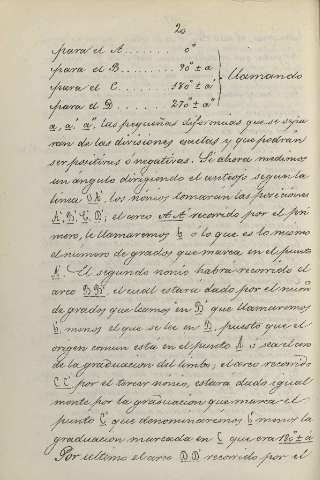 20
para el A........ 0°
para el B........ 90° ± a
para el C........ 180° ± a'
para el D........ 270° ± a"
llamando
a, a', a", las pequeñas diferencias que se sepa
ran de las divisiones exactas y que podrán
ser positivas o negativas. Si ahora medimos
un ángulo dirigiendo el anteojo segun la
linea OA', los nónios tomaran las posiciones
A', B', C', D'; el arco AA' recorrido por el pri
mero, le llamaremos b ó lo que es lo mismo
el número de grados que marca en el punto
A'. El segundo nonio habra recorrido el
arco BB', el cual estara dado por el núm
de grados que leamos en B' que llamaremos
b' menos el que se lee en B, puesto que el
origen comun está en el punto A ó sea el cero
de la graduacion del limbo; el arco recorrido
CC' por el tercer nónio, estara dado igual
mente por la graduacion que marca el
punto C' que denominaremos b" menos la
graduacion marcada en C que era 180° ± a'
Por ultimo el arco DD' recorrido por el